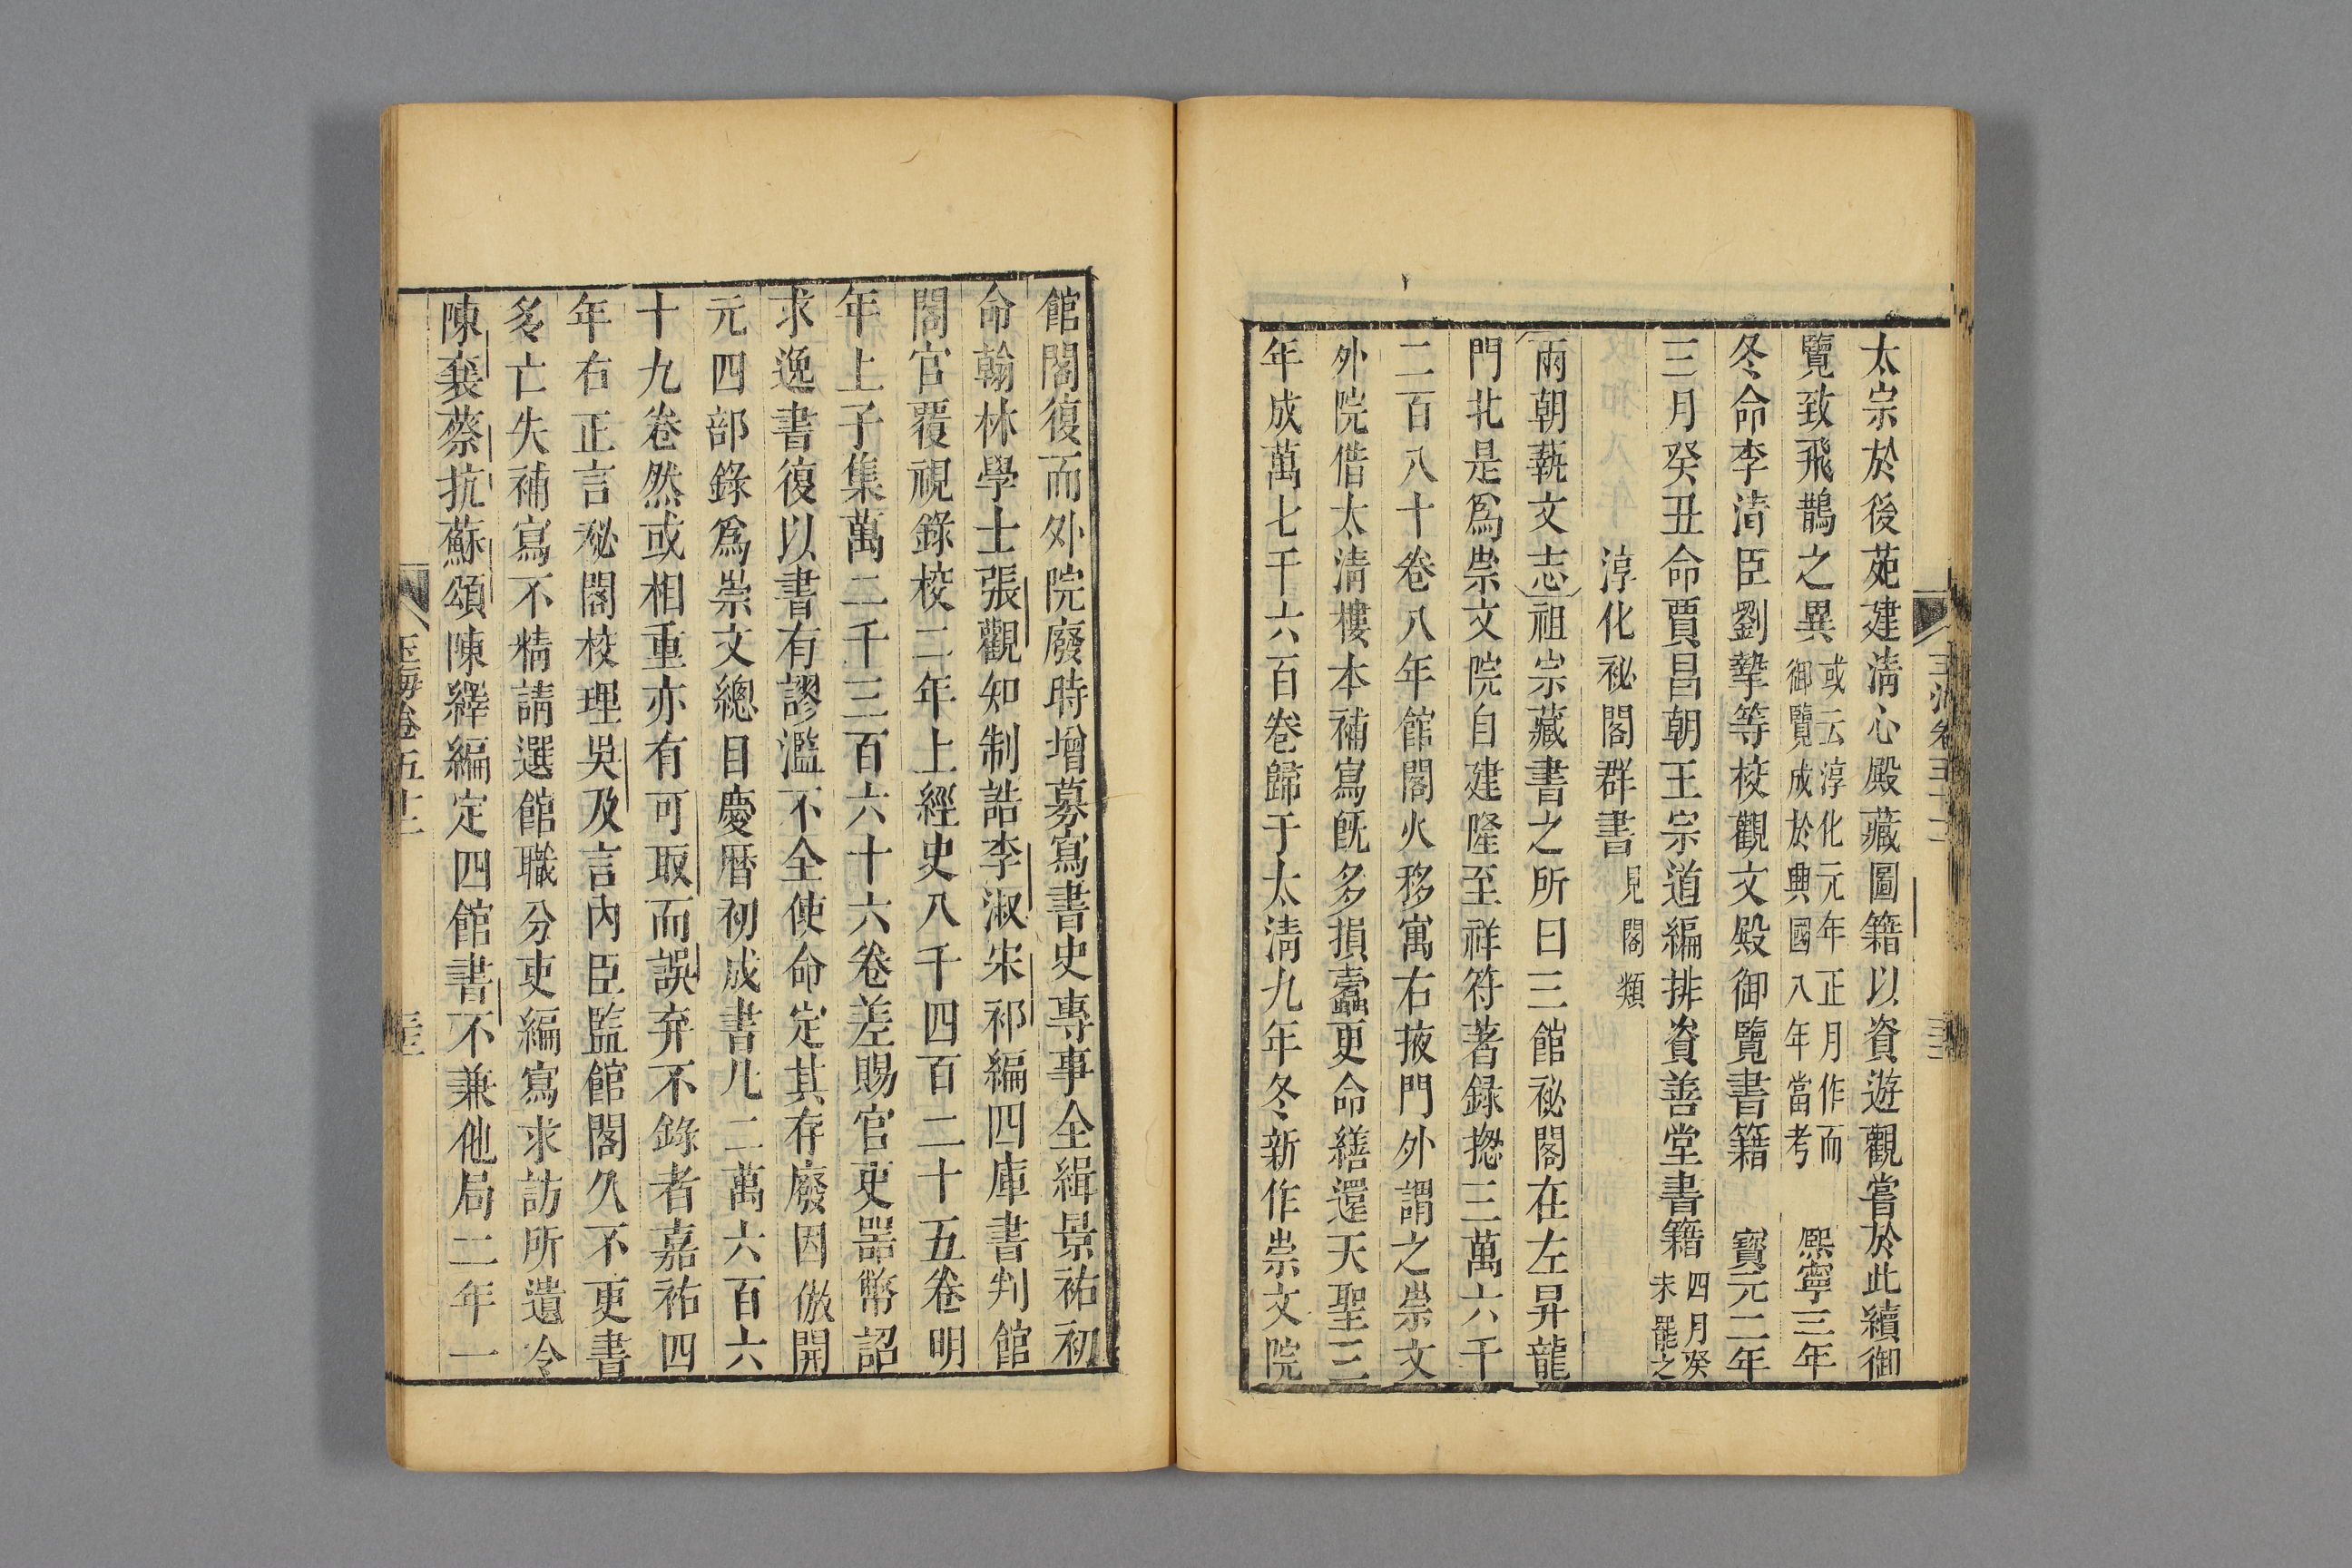 太宗於後苑建淸心殿藏圖籍以資遊觀嘗於此續御
覽致飛鵲之異或云淳化元年正月作而御覽成於典國八年當考 熙寧三年
冬命李清臣劉摯等校觀文殿御覽書籍 寳元二年
三月癸丑命賈昌朝王宗道編排資善堂書籍四月癸未罷之
淳化祕閣群書見閣類
兩朝藝文志祖宗藏書之所曰三館祕閣在左昇龍
門北是爲崇文院自建隆至祥符著録揔三萬六千
二百八十卷八年館閣火移寓右掖門外謂之崇文
外院借太淸樓本補寫旣多損蠹更命繕還天聖三
年成萬七千六百卷歸于太淸九年冬新作崇文院
館閣復而外院廢時增募寫書史專事全緝景祐初
命翰林學士張觀知制誥李淑宋祁編四庫書判館
閣官覆視錄校二年上經史八千四百二十五卷明
年上子集萬二千三百六十六卷差賜官吏噐幣詔
求逸書復以書有謬濫不全使命定其存廢因倣開
元四部錄爲崇文總目慶曆初成書凡二萬六百六
十九卷然或相重亦有可取而誤弃不錄者嘉祐四
年右正言秘閣校理吳及言內臣監館閣久不更書
多亡失補寫不精請選館職分吏編寫求訪所遺令
陳襄蔡抗蘇頌陳繹編定四館書不兼他局二年一
玉海卷五十二